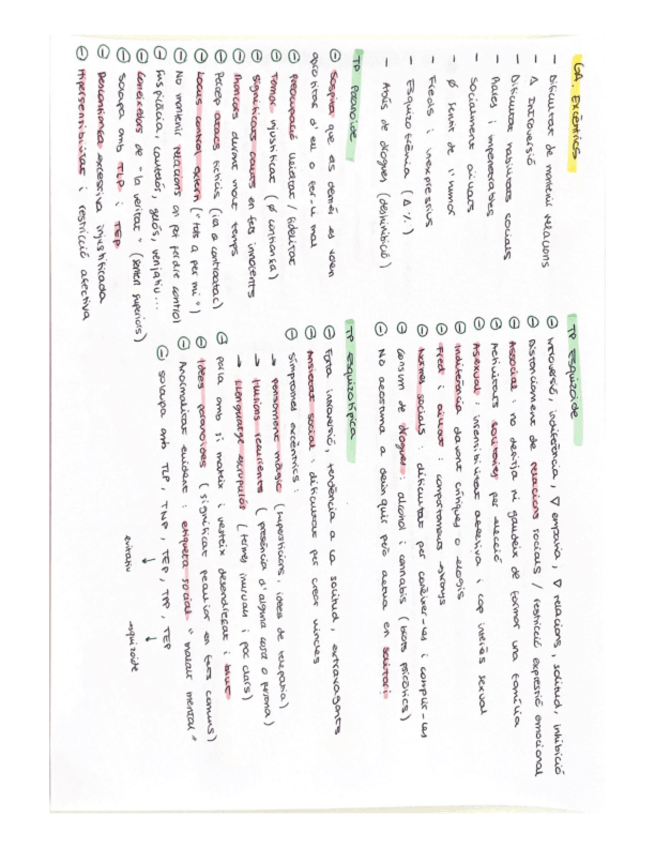 GA. Excèntrics
- Dificultat de mantenir relacions
- Δ Introversió
- Dificultat habilitats socials
- Rares i impenetrables
- Socialment aïllats
- Ø sentit de l'humor
- Freds i inexpressius
- Esquizotímia (Δ %)
- Abús de drogues (deshinibició)
TP Paranoide
Sospites que es demés es volen
aprofitar d'ell o fer-li mal
Preocupació lleialtat / fidelitat
Temor injustificat (Ø confiança)
Significats ocults en fets innocents
Rancors durant molt temps
Percep atacs ficticis (ira a contraatac)
Locus control extern ("tots a per mi")
No mantenir relacions on pot perdre control
Suspicàcia, cautelós, gelós, venjatiu...
Coneixedors de "la veritat" (senten superiors)
Solapa amb TLP i TEP
Desconfiança excessiva injustificada
Hipersensibilitat i restricció afectiva
TP Esquizoide
Introversió, indiferència, ∇ empatia, ∇ relacions, solitud, inhibició
Distanciament de relacions socials / restricció expressió emocional
Associal: no desitja ni gaudeix de formar una família
Activitats solitàries per elecció
Asexual: insensibilitat afectiva i cap interès sexual
Indiferència davant crítiques o elogis
Fred i aïllat: comportaments estranys
Normes socials: dificultat per conèixer-les i complir-les
Consum de drogues: alcohol i cannabis (brots psicòtics)
No acostuma a delinquir però actua en solitari
TP Esquizotípica
Forta introversió, tendència a la solitud, extravagants
Ansietat social: dificultat per crear vincles
Símptomes excèntrics:
→ pensament màgic (supersticions, idees de telepatia)
→ il·lusions recurrents (presència d'alguna cosa o persona)
→ llenguatge escrupulós (termes inusuals i poc clars)
parla amb si mateix i vesteix desendreçat i brut
Idees paranoides (significat peculiar en fets comuns)
Anormalitat evident: etiqueta social "malalt mental"
Solapa amb TLP, TNP, TEP, TPP, TEP
↓ ↓
evitatiu esquizoide